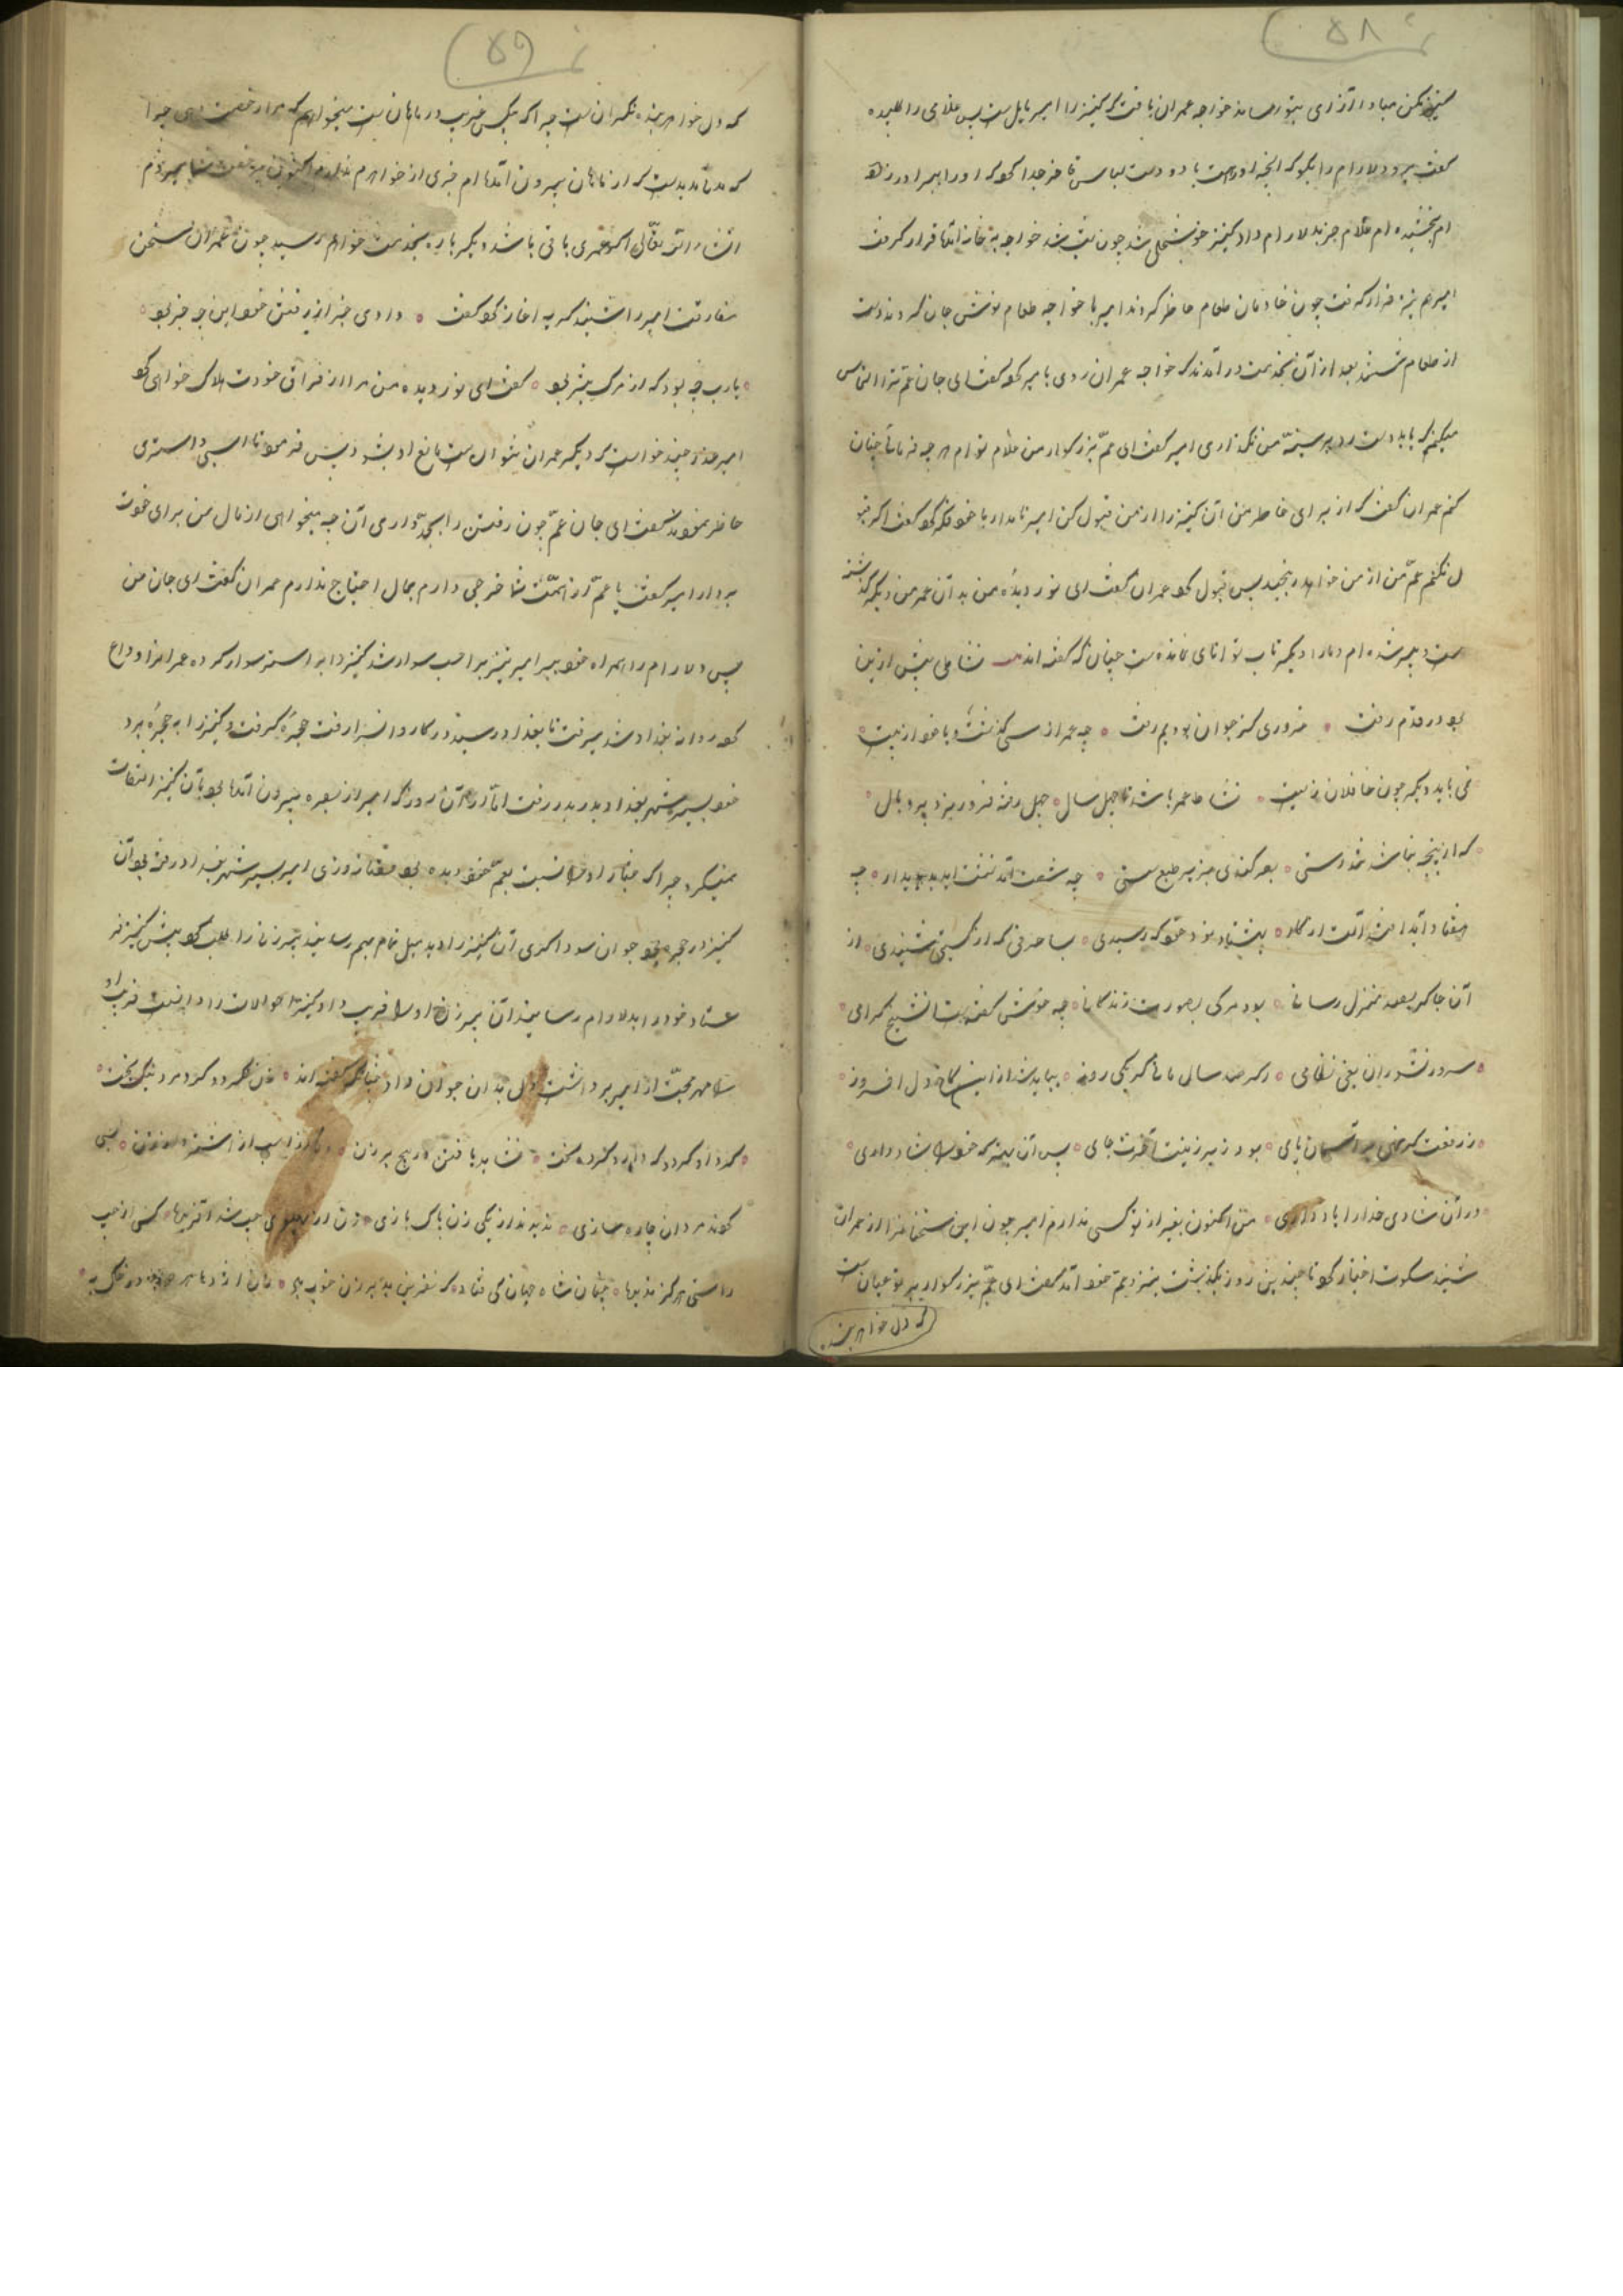 ۵۸
مکن مبادا آزاری بتو رساند خواجه عمران یافت که کنیز را امیر مایل ست پس غلامی را طلبیده
گفت برو دلارام را بگو که آنچه او ست با دو دست لباس فاخر جدا کو که او را بهمراه
ام بخشیده ام غلام خبر بدلارام داد کنیز خوشحال شد چون شب شد خواجه به خانه آمد قرار گرفت
امیر هم نیز قرار گرفت چون خادمان طعام حاضر کردند امیر با خواجه طعام نوش جان کردند دست
از طعام شستند بعد از آن بخدمت در آمدند که خواجه عمران روی با میر کو گفت ای جان عم ترا التماس
میکنم که باید دست رد بر سینه من نگذاری امیر گفت ای عم بزرگوار من غلام توام هر چه فرمائی چنان
کنم عمران گفت که از برای خاطر من آن کنیز را از من قبول کن امیر نامدار با خود فکر کو گفت اگر قبو
ل نکنم عم من از من خواهد رنجید پس قبول کو عمران گفت ای نور دیده من بدان عمر من دیگر گذشته
ست و پیر شده ام و مارا دیگر تاب توانای نمانده ست چنان که گفته اند نشاطی پیش ازین
بود در قدم رفت ٭ غروری کز جوان بودیم رفت ٭ چه عمر از سی گذشت و یا خود از بیست
نمی باید دیگر چون غافلان زیست ٭ نشاط عمر باشد تا چهل سال ٭ چهل رفته فرو ریزد پر و بال
که از پنجه نباشد تندرستی ٭ بصر کندی پذیرد طبع سستی ٭ چه شصت آمد نشست آمد پدیدار ٭ چه
هفتاد آمد افتد آلت از کار ٭ بهشتاد نود چو که رسیدی ٭ بسا حرفی که از گیتی شنیدی ٭ از
آن جا گر بصد منزل رسانی ٭ بود مرگی بصورت زندگانی ٭ چه خوش گفت شیخ گرامی
سرور نشوران یعنی نظامی ٭ اگر صد سال مانی گر یکی روز ٭ بباید شد ازین کاخ دل افروز
ز رفعت گر نهی بر آسمان پای ٭ بود زیر زمینت آخرت جای ٭ پس آن بهتر که خود را شاد داری
در آن شادی خدا را یاد داری ٭ من اکنون بغیر از تو کسی ندارم امیر چون این سخنان را از عمران
شنید سکوت اختیار کو تا چندین روز بگذشت بنزد عم خود آمد گفت ای عم بزرگوار بر تو عیان ست
که دل خواهر بنده
۵۹
که دل خواهر بنده نگران ست چرا که بیکس غریب در ماهان ست میخواهم که مرا رخصت دهی چرا
که مدت مدیدست که از ماهان بیرون آمده ام خبری از خواهرم ندارم اکنون
انشاء الله تعالی اگر عمری باقی باشد دیگر باره بخدمت خواهم رسید چون عمران سخن
مفارقت امیر را شنید گریه آغاز کو گفت ٭ دادی خبر از رفتن خود این چه خبر بو
یارب چه بود که از مرگ بتر بو ٭ گفت ای نور دیده من مرا از فراق خودت هلاک خواهی کو
امیر عذر چند خواست کرد دیگر عمران نتوانست مانع او بشود پس فرمود تا اسبی و استری
حاضر نمودند گفت ای جان عم چون رفتن را بجد داری آن چه میخواهی از مال من برای خودت
بردار امیر گفت یا عم از همت شما خرجی دارم بمال احتیاج ندارم عمران گفت ای جان من
پس دلارام را همراه خود ببر امیر نیز بر اسب سوار شد کنیز را بر استر سوار کرده عمران را وداع
کو روانه بغداد شد میرفت تا ببغداد رسید در کاروانسرا رفت حجره گرفت و کنیز را به حجره برد
خود بسیر شهر بغداد بدر رفت اما از آن روز که امیر از بصره بیرون آمده بو بآن کنیز التفات
نمیکرد چرا که فساد او را نسبت بعم خود دیده بو قضا را روزی امیر بسیر شهر بغداد رفته بو آن
کنیز در حجره بو جوان سوداگری آن کنیز را دید میل تمام بهم رسانید پیر زن را طلب کو پیش کنیز فر
ستاد خود را بدلارام رسانید آن پیر زن او را فریب داد کنیز احوالات را دانست فریب او
شد مهر محبت از امیر برداشت دل بدان جوان داد چنانکه گفته اند
٭ نشاید یافتن در هیچ برزن ٭ وفا در اسب و در شمشیر و در زن ٭ بسی
کردند مردان چاره سازی ٭ ندیدند از یکی زن پاک بازی ٭ زن از پهلوی چپ شد آفریده ٭ کسی از چپ
راستی هرگز ندیده ٭